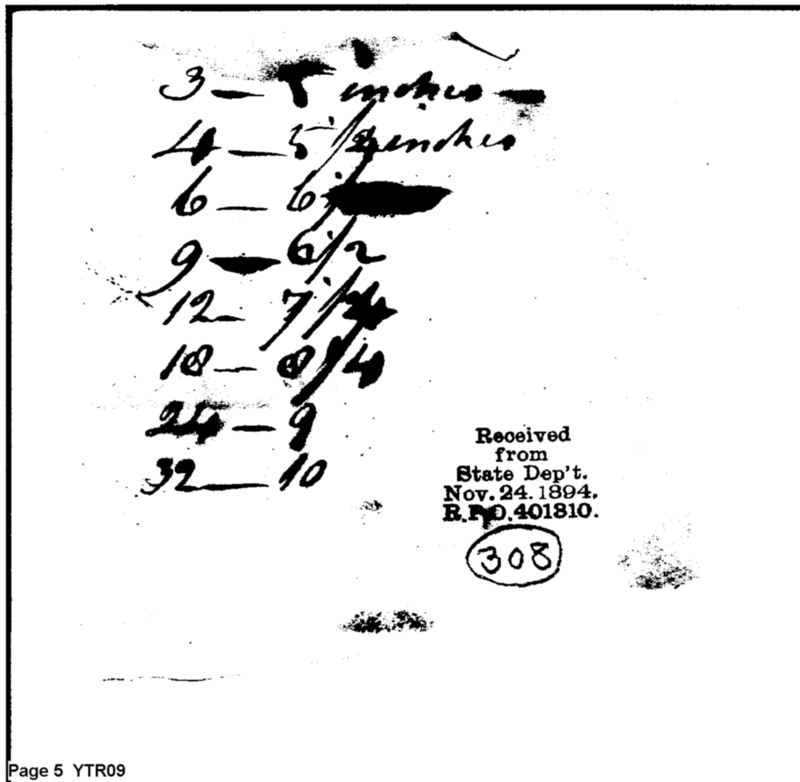 3 — 5 inches —
4 — 5 1/2 inches
6 — 6
9 — 6 1/2
12 — 7 1/4
18 — 8 1/4
24 — 9
32 — 10
Received
from
State Dep't.
Nov. 24. 1894.
R.P.O. 401810.
308
Page 5 YTR09